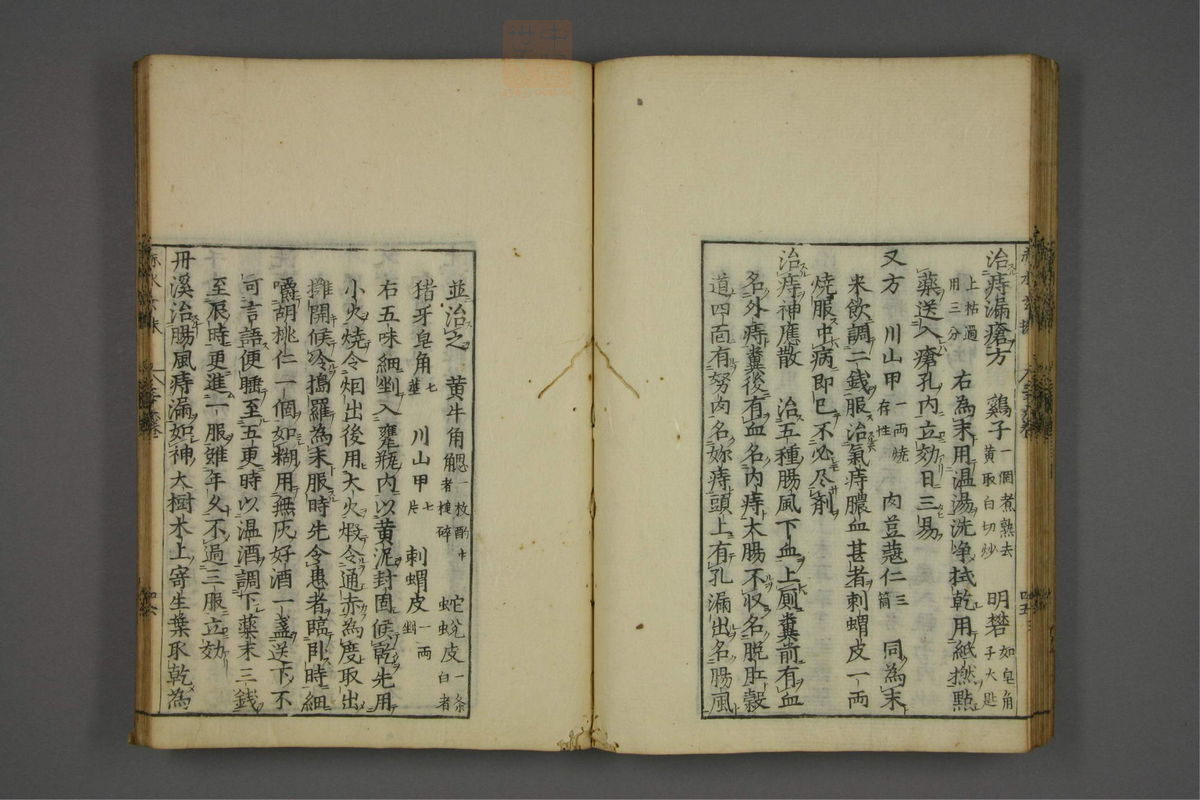 治痔漏瘡方　鷄子一個煮熟去黄取白切炒　明礬如皂角子大匙
上枯過用三分　右為末用温湯洗净拭乾用紙撚點
藥送入瘡孔内立効日三易
又方　川山甲一両焼存性　肉荳蔲仁三箇　同為末
米飲調二錢服治氣痔膿血甚者刺蝟皮一両
焼服中病即已不必尽剤
治痔神應散　治五種腸風下血上厠糞前有血
名外痔糞後有血名内痔大腸不収名脱肛穀
道四面有努肉名妳痔頭上有孔漏出名腸風
並治之　黄牛角䚡一枚酌中者搥碎　蛇蛻皮一条虫蛇白者
猪牙皂角七莖　川山甲七片　刺蝟皮一両剉
右五味細剉入甕瓶内以黄泥封固候乾先用
小火焼令烟出後用大火煅令通赤為度取出
攤開候冷搗羅為末服時先令患者臨卧時細
嚼胡桃仁一個如糊用無灰好酒一盞送下不
可言語便睡至五更時以温酒調下藥末三錢
至辰時更進一服雖年久不過三服立効
丹溪治腸風痔漏如神大樹木上寄生葉取乾為